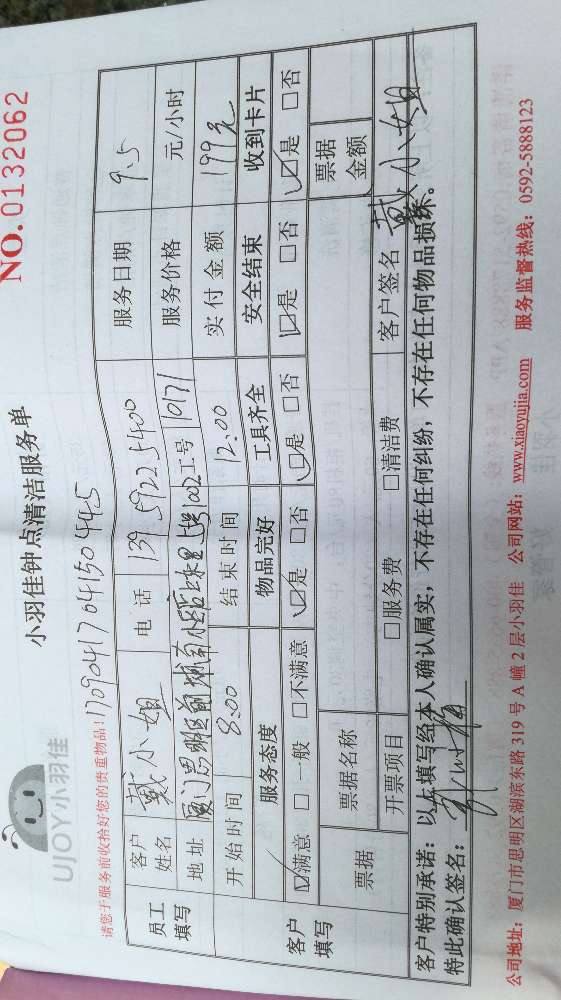 UJOY小羽佳
小羽佳钟点清洁服务单
NO.0132062
请您于服务前收拾好您的贵重物品!
17090417041504445
员工填写 客户姓名 戴小姐 电话 139 5922 5400 服务日期 9.5
地址 厦门思明区前埔 1002 工号 10171 服务价格 元/小时
开始时间 8:00 结束时间 12:00 实付金额 199元
客户填写 服务态度 物品完好 工具齐全 安全结束 收到卡片
☑满意 □一般 □不满意 ☑是 □否 ☑是 □否 ☑是 □否 ☑是 □否
票据 票据名称 票据金额
开票项目 □服务费 □清洁费 客户签名 戴小姐
客户特别承诺:以上填写经本人确认属实,不存在任何纠纷,不存在任何物品损坏。
特此确认签名:
公司地址:厦门市思明区湖滨东路 319 号 A 幢 2 层小羽佳 公司网站:www.xiaoyujia.com 服务监督热线:0592-5888123